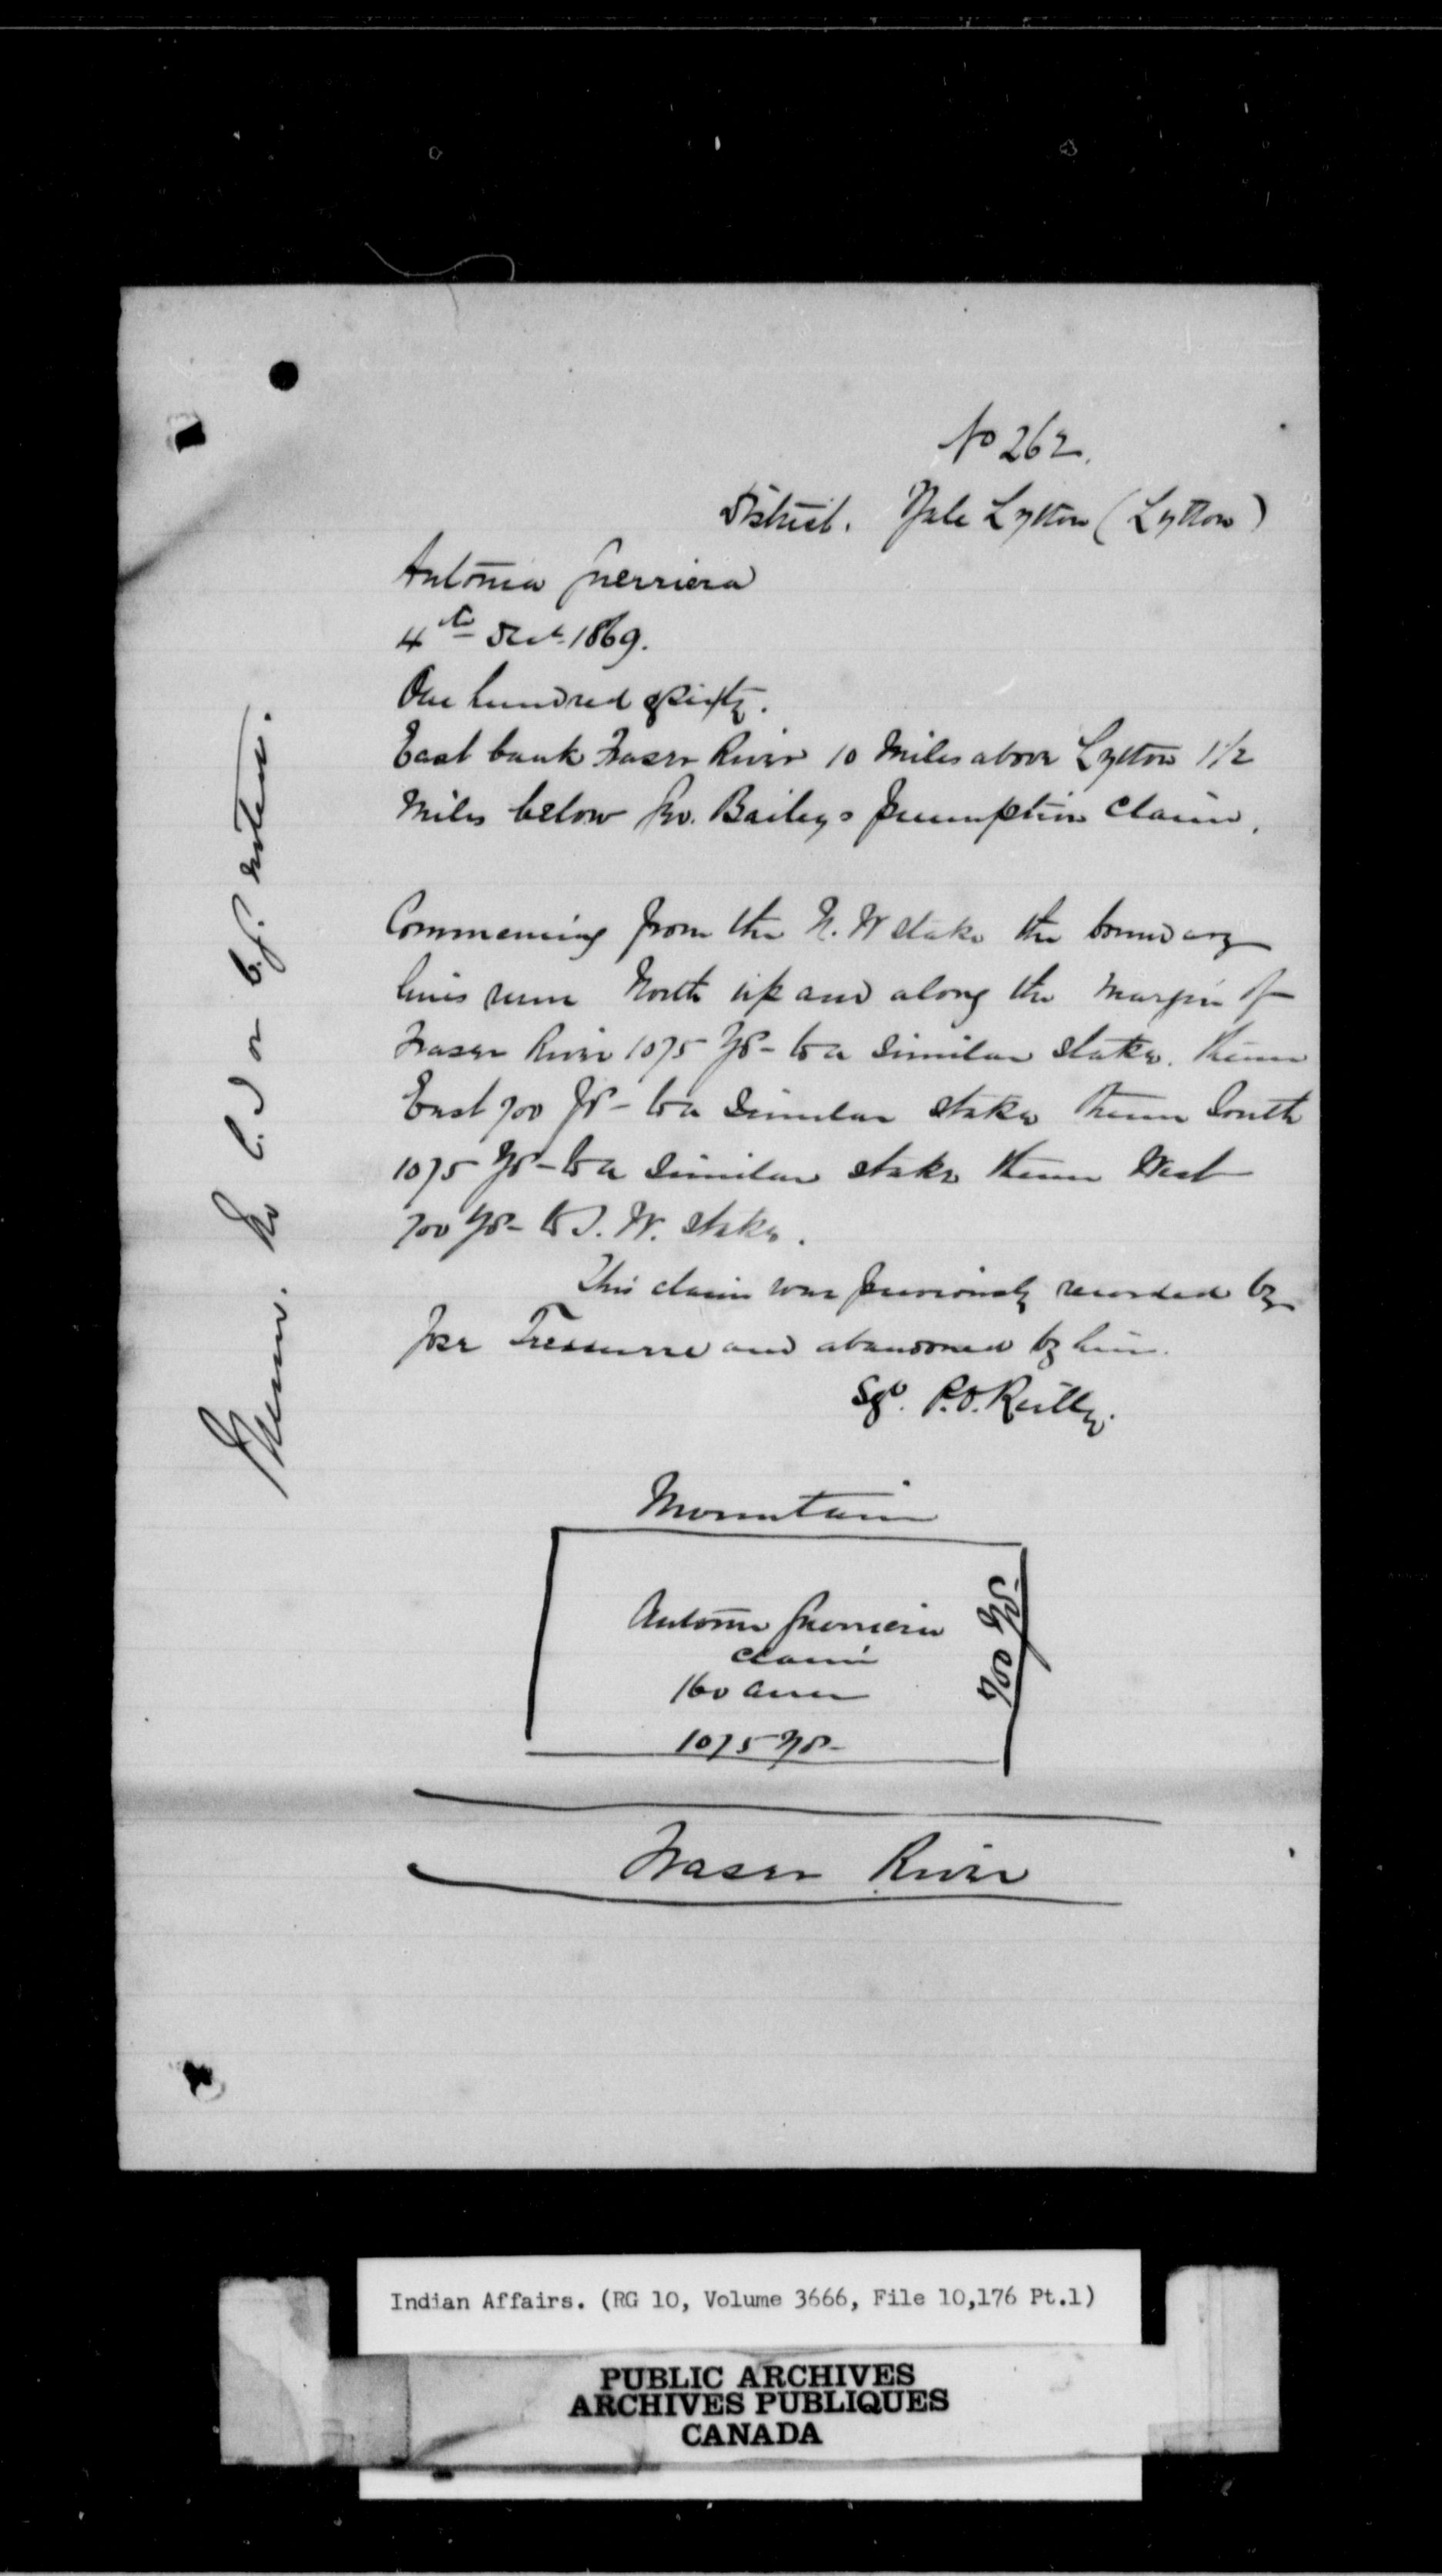 No 262.
District. Yale Lytton (Lytton)
Antonia
4th Dec 1869.
One hundred & sixty.
East bank Fraser River 10 Miles above Lytton 1 1/2
Miles below Baileys premption Claim.
Commencing from the stake the boundary
lines run North up and along the Margin of
Fraser River 1075 Yds - to a similar stake. thence
East 700 Yds - to a similar stake thence South
1075 Yds - to a similar stake thence West
700 Yds - to S. W. stake.
This claim was previously recorded by
and abandoned by him.
Sgd. P. O. Reilly.
Mountain
claim
160 acres
700 Yds
1075 Yds -
Fraser River
Indian Affairs. (RG 10, Volume 3666, File 10,176 Pt.1)
PUBLIC ARCHIVES
ARCHIVES PUBLIQUES
CANADA